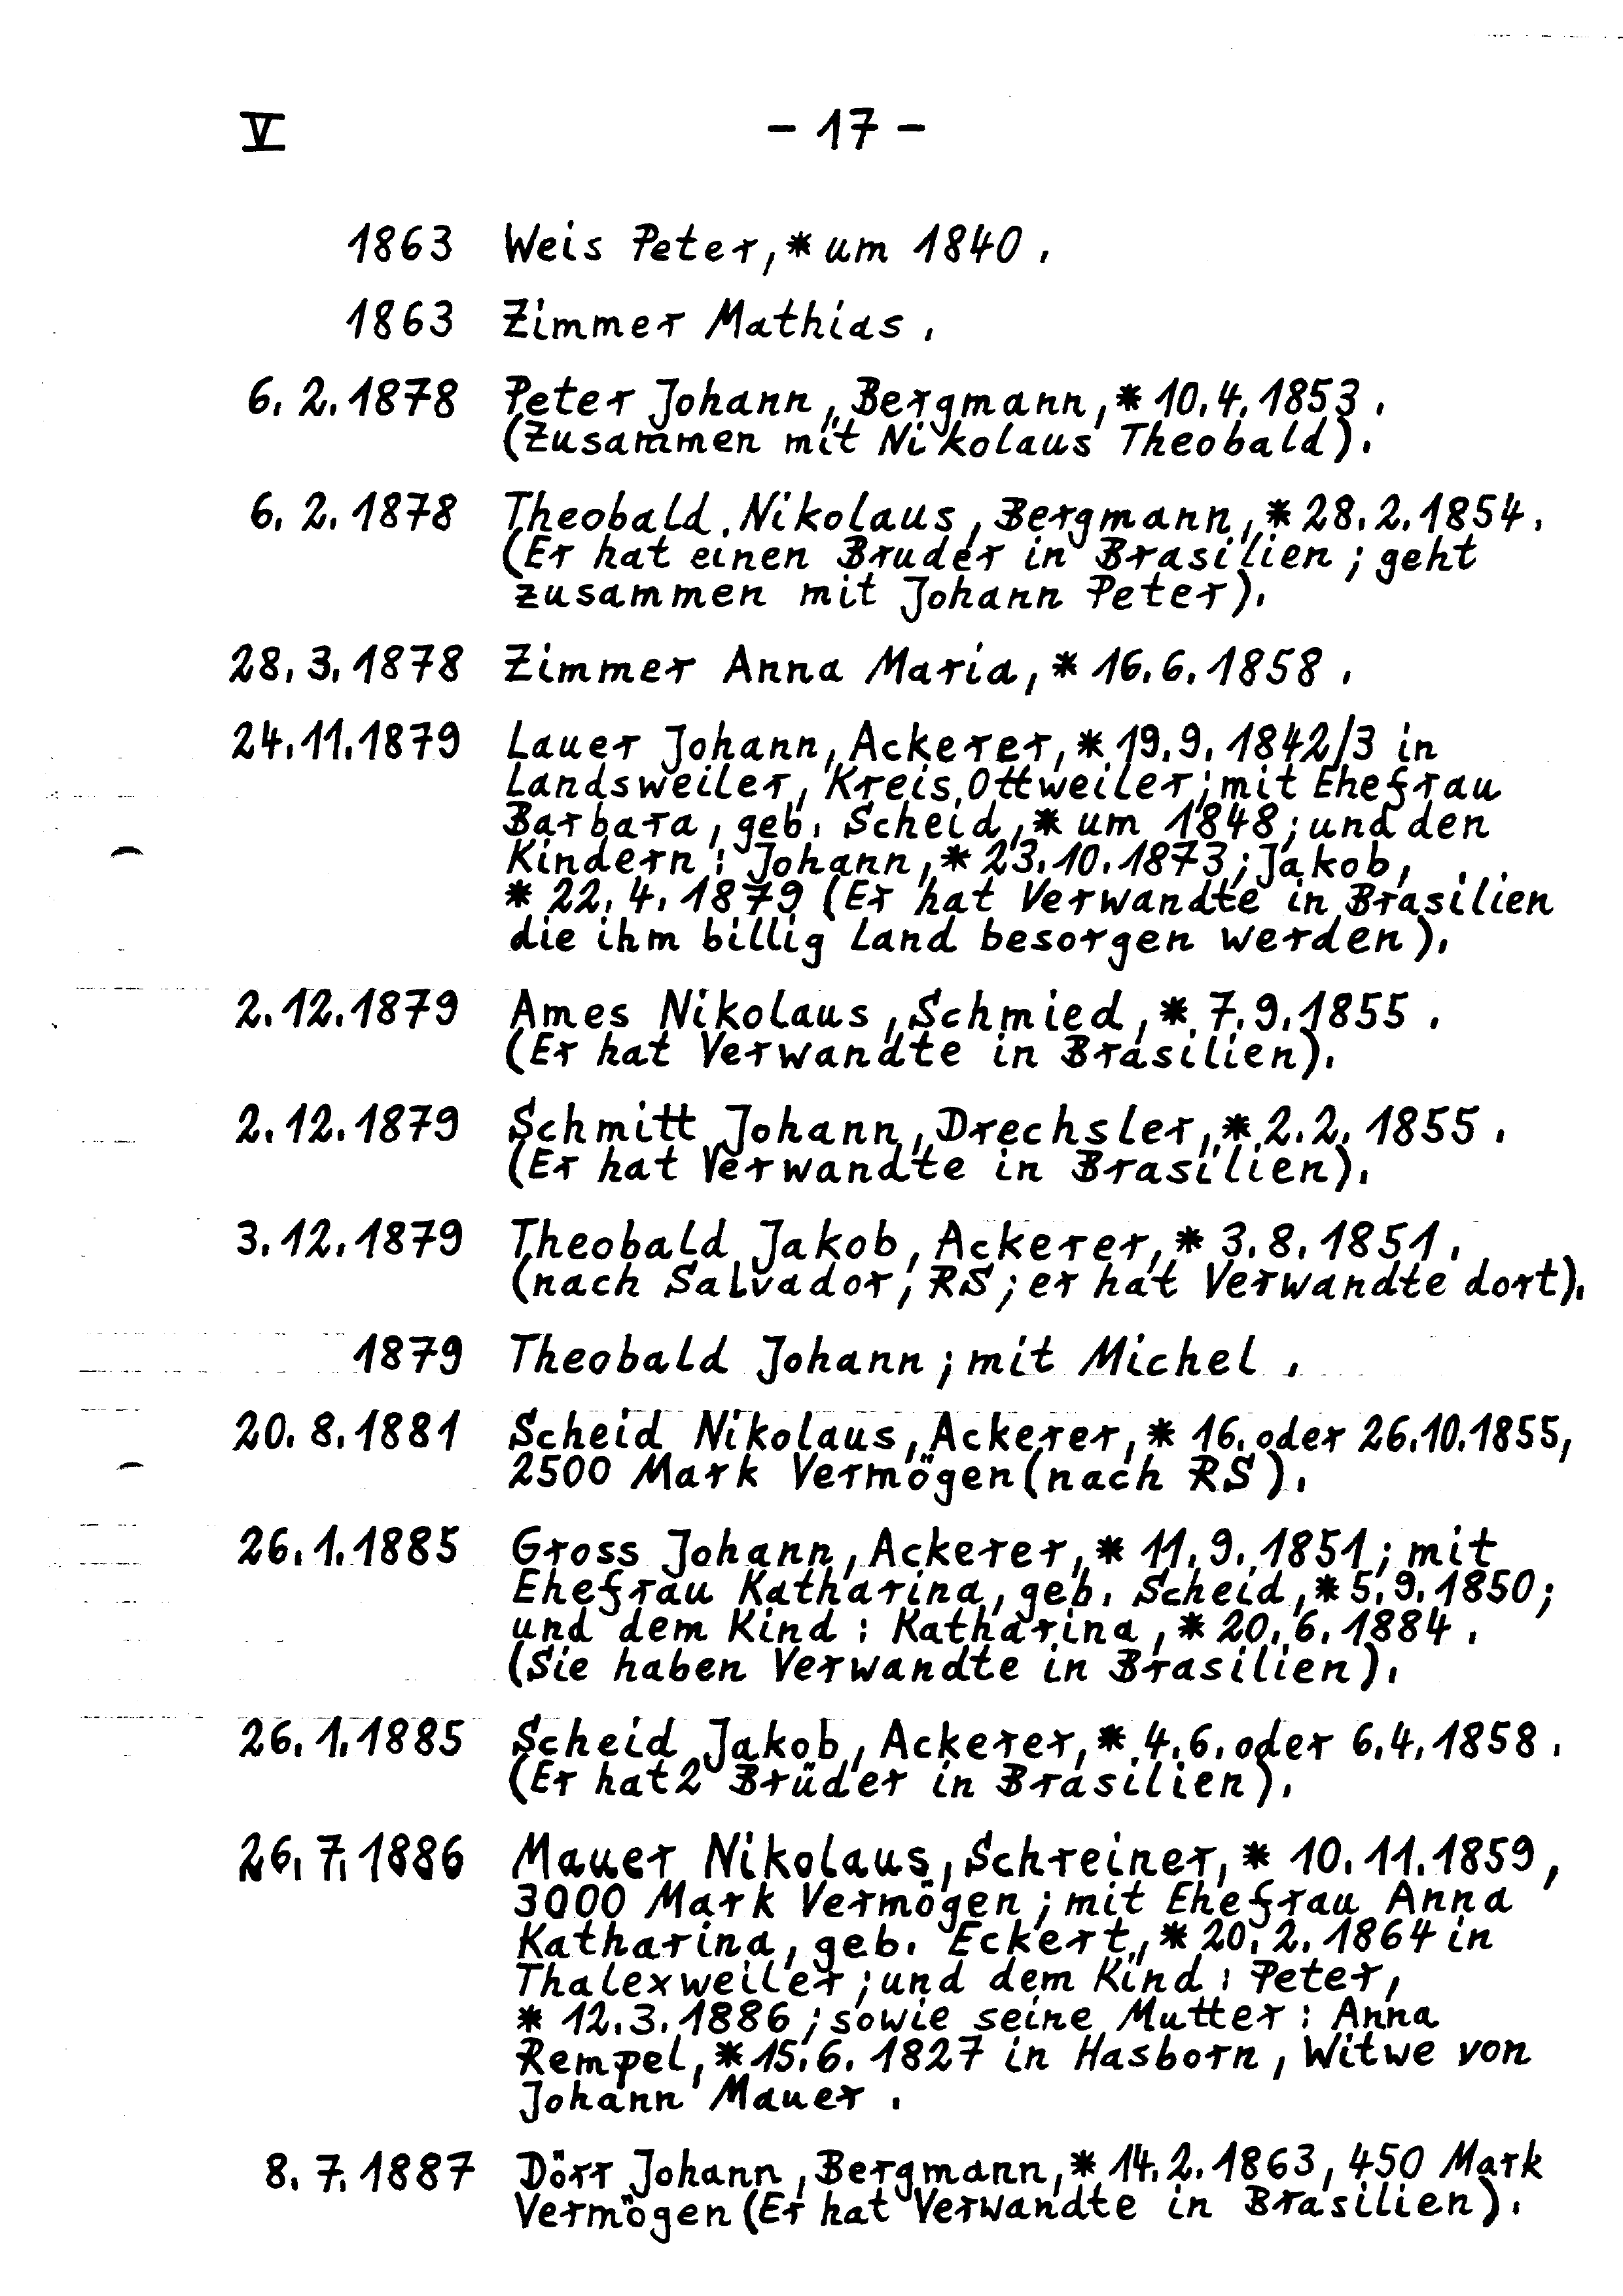 V - 17 -
1863 Weis Peter, * um 1840.
1863 Zimmer Mathias.
6. 2. 1878 Peter Johann, Bergmann, * 10. 4. 1853.
(Zusammen mit Nikolaus Theobald).
6. 2. 1878 Theobald Nikolaus, Bergmann, * 28. 2. 1854.
(Er hat einen Bruder in Brasilien; geht
zusammen mit Johann Peter).
28. 3. 1878 Zimmer Anna Maria, * 16. 6. 1858.
24. 11. 1879 Lauer Johann, Ackerer, * 19. 9. 1842/3 in
Landsweiler, Kreis Ottweiler; mit Ehefrau
Barbara, geb. Scheid, * um 1848; und den
Kindern: Johann, * 23. 10. 1873; Jakob,
* 22. 4. 1879 (Er hat Verwandte in Brasilien
die ihm billig Land besorgen werden).
2. 12. 1879 Ames Nikolaus, Schmied, * 7. 9. 1855.
(Er hat Verwandte in Brasilien).
2. 12. 1879 Schmitt Johann, Drechsler, * 2. 2. 1855.
(Er hat Verwandte in Brasilien).
3. 12. 1879 Theobald Jakob, Ackerer, * 3. 8. 1851.
(nach Salvador, RS; er hat Verwandte dort).
1879 Theobald Johann; mit Michel.
20. 8. 1881 Scheid Nikolaus, Ackerer, * 16. oder 26. 10. 1855,
2500 Mark Vermögen (nach RS).
26. 1. 1885 Gross Johann, Ackerer, * 11. 9. 1851; mit
Ehefrau Katharina, geb. Scheid, * 5. 9. 1850;
und dem Kind: Katharina, * 20. 6. 1884.
(Sie haben Verwandte in Brasilien).
26. 1. 1885 Scheid Jakob, Ackerer, * 4. 6. oder 6. 4. 1858.
(Er hat 2 Brüder in Brasilien).
26. 7. 1886 Mauer Nikolaus, Schreiner, * 10. 11. 1859,
3000 Mark Vermögen; mit Ehefrau Anna
Katharina, geb. Eckert, * 20. 2. 1864 in
Thalexweiler; und dem Kind: Peter,
* 12. 3. 1886; sowie seine Mutter: Anna
Rempel, * 15. 6. 1827 in Hasborn, Witwe von
Johann Mauer.
8. 7. 1887 Dörr Johann, Bergmann, * 14. 2. 1863, 450 Mark
Vermögen (Er hat Verwandte in Brasilien).